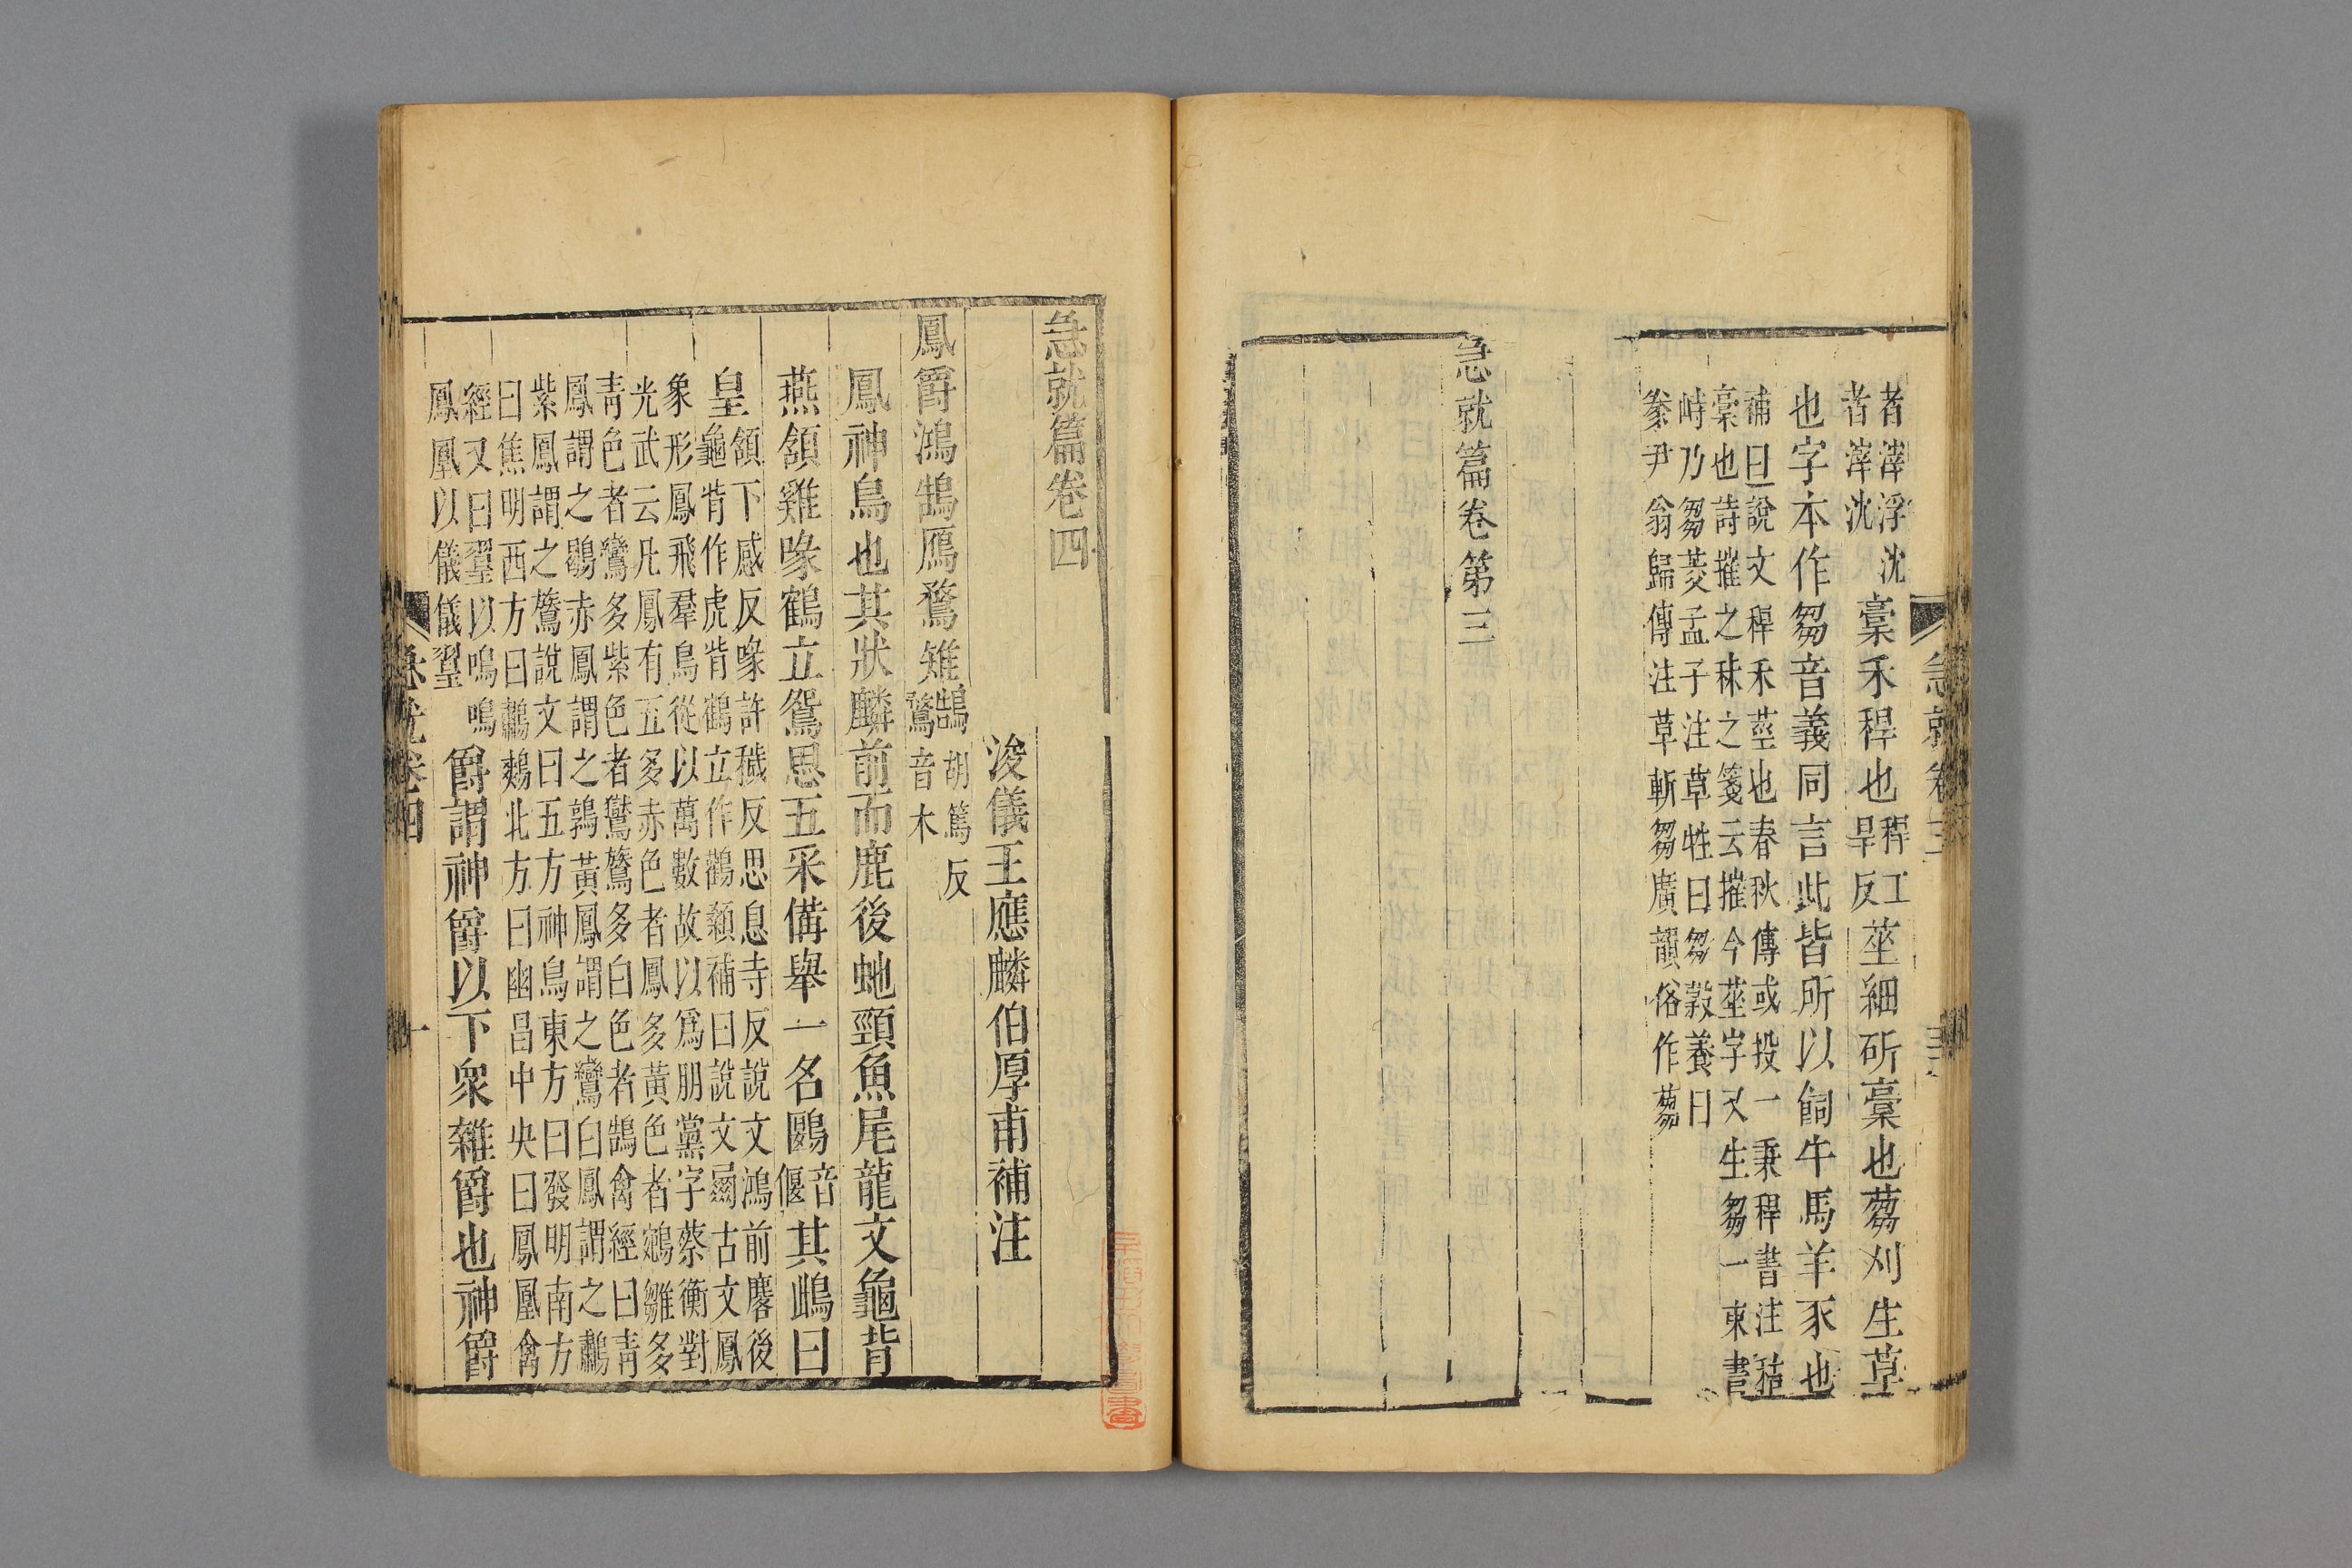 者滓浮沈
者滓沈
稾禾稈也
稈工
旱反
莖細斫稾也蒭刈生草
也字本作芻音義同言此皆所以飼牛馬羊豕也
補曰說文稈禾莖也春秋傳或投一秉稈書注秸
稾也詩摧之秣之箋云摧今莝字又生芻一束書
峙乃芻茭孟子注草牲曰芻穀養曰
豢尹翁歸傳注草斬芻廣韻俗作蒭
急就篇卷第三
急就卷三
急就篇卷四
浚儀王應麟伯厚甫補注
鳳爵鴻鵠鴈鶩雉
鵠胡篤反
鶩音木
鳳神鳥也其狀麟前而鹿後虵頸魚尾龍文龜背
燕頷雞喙鶴立鴛思五采備舉一名鶠
音
偃
其鴟曰
皇
頷下感反喙許穢反思息寺反說文鴻前麐後
龜背作虎背鶴立作鸛顙補曰說文屬古文鳳
象形鳳飛羣鳥從以萬數故以爲朋黨字蔡衡對
光武云凡鳳有五多赤色者鳳多黃色者鵷雛多
青色者鸞多紫色者鸑鷟多白色者鵠禽經曰青
鳳謂之鶡赤鳳謂之鶉黃鳳謂之鸞白鳳謂之鷫
紫鳳謂之鷟說文曰五方神鳥東方曰發明南方
曰焦明西方曰鷫鷞北方曰幽昌中央曰鳳凰禽
經又曰翟以鳴鳴
鳳凰以儀儀翟
爵謂神爵以下眾雜爵也神爵
急就卷四
一